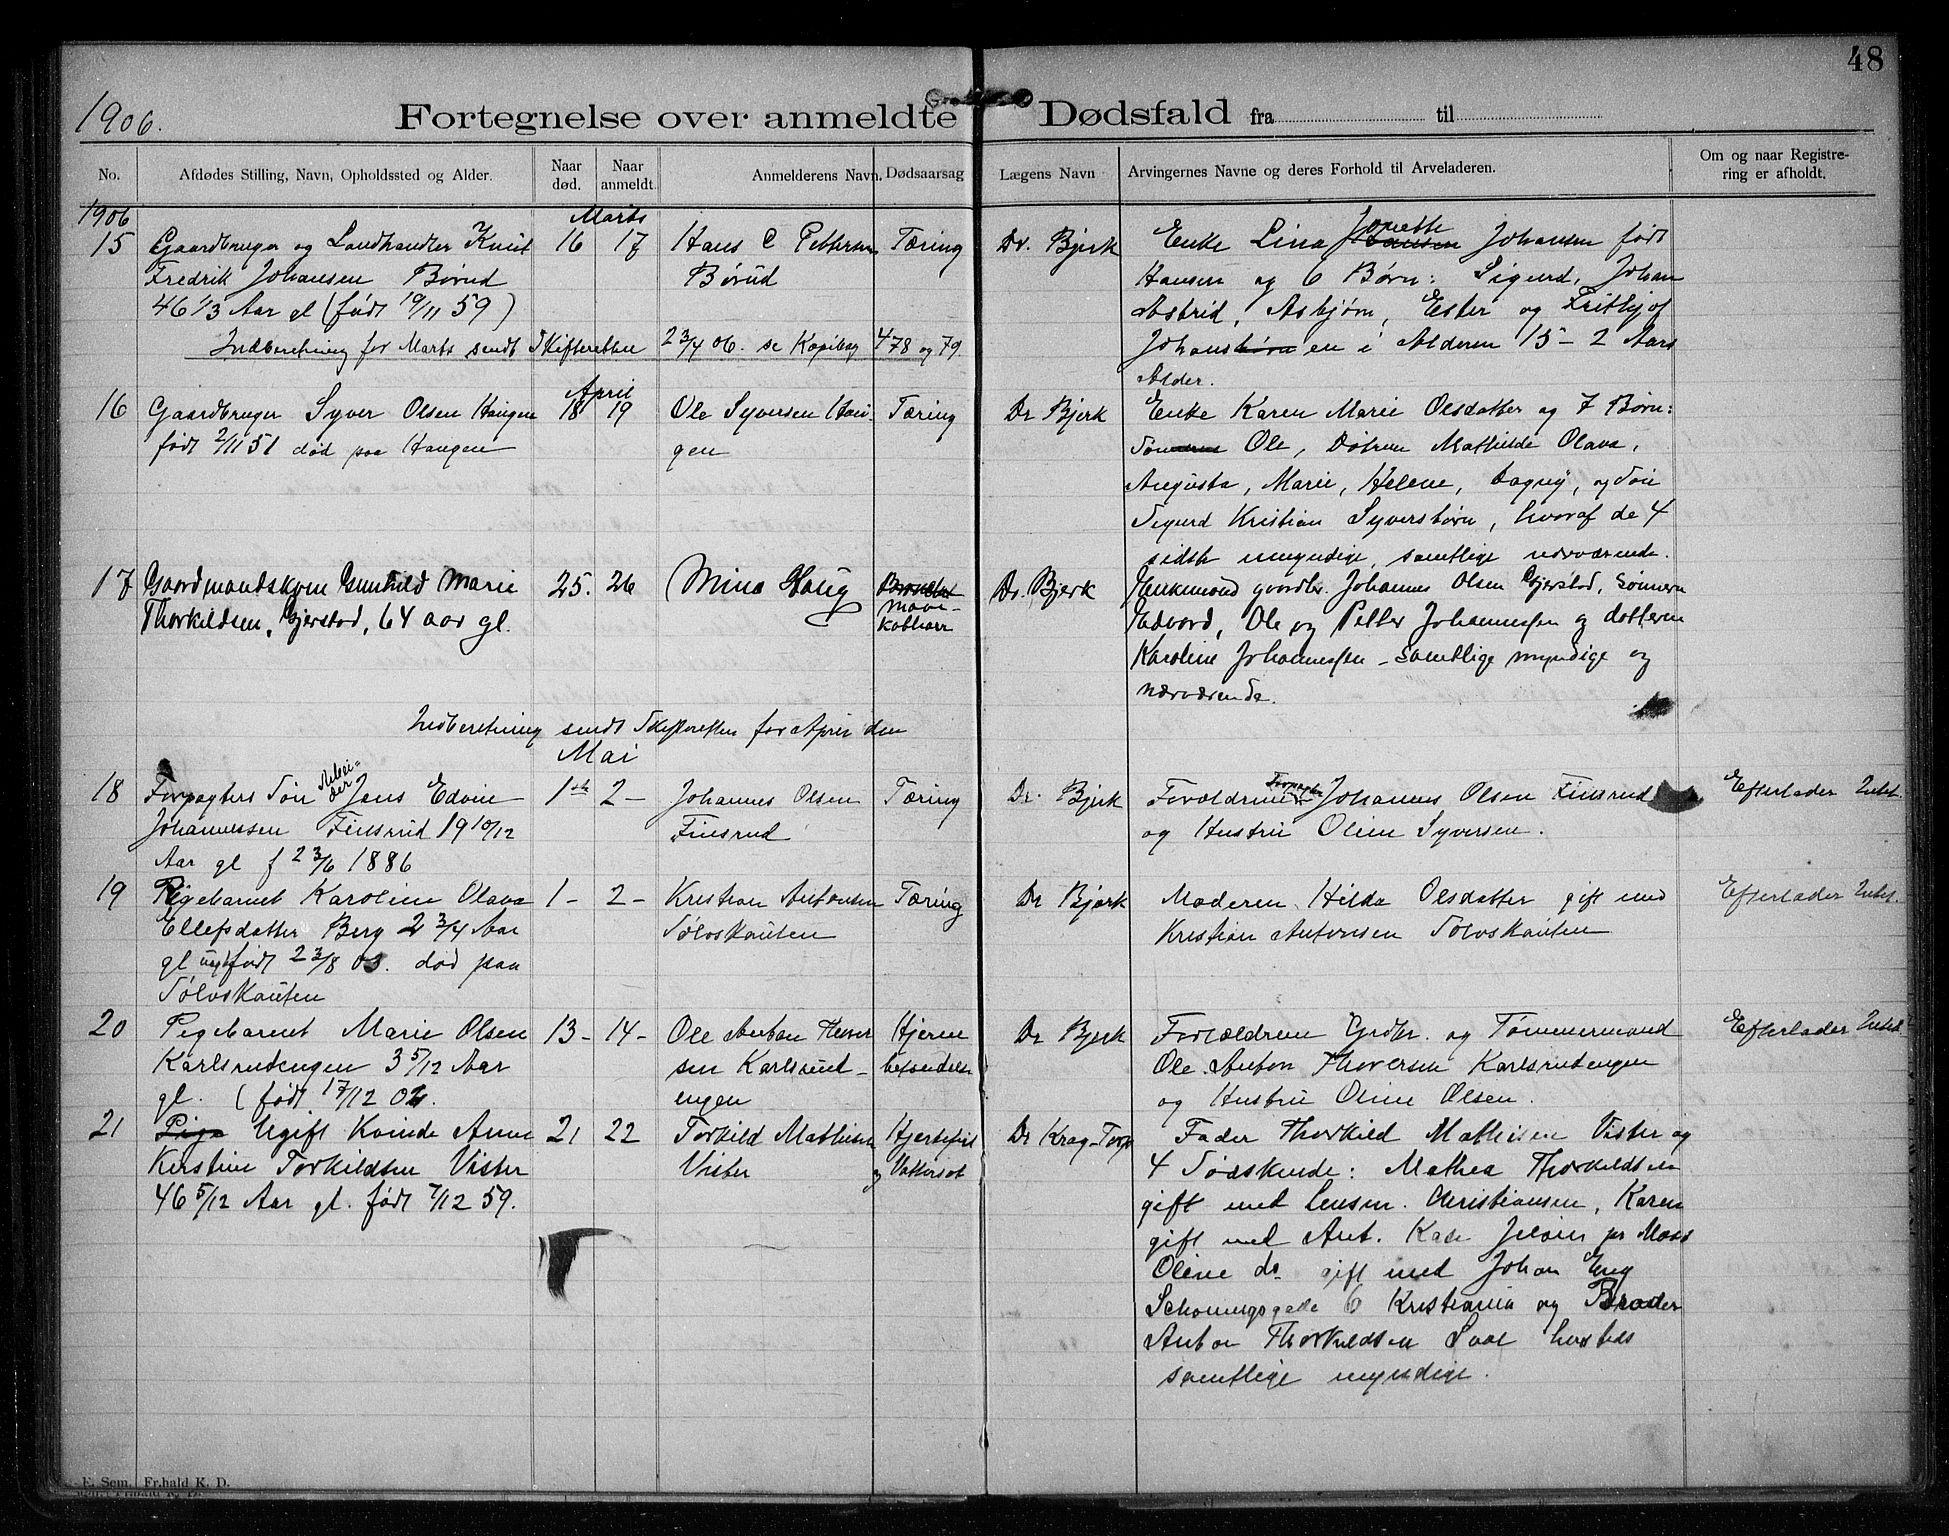 48
1906.
Fortegnelse over anmeldte Dødsfald fra til
No.
Afdødes Stilling, Navn, Opholdssted og Alder.
Naar død.
Naar anmeldt.
Anmelderens Navn.
Dødsaarsag
Lægens Navn
Arvingernes Navne og deres Forhold til Arveladeren.
Om og naar Registre-
ring er afholdt.
1906
Marts
15 Gaardbruger og Landhandler Knut 16 17 Hans C Pettersen Tæring Dr. Bjerk Enke Lina Jonette Hansen Johansen født
Fredrik Johansen Børud Børud Hansen og 6 Børn: Sigurd, Johan
46 1/3 Aar gl (født 19/11 59) Astrid, Asbjørn, Ester og Frithjof
Indberetning for Marts sendt Skifteretten 23/4 06. se Kopibog 478 og 79. Johansbørn en i Alderen 15 - 2 Aars
Alder.
April
16 Gaardbruger Syver Olsen Haugen 18 19 Ole Syversen Hau- Tæring Dr Bjerk Enke Karen Marie Olsdatter og 7 Børn:
født 2/11 51 død paa Haugen gen Ole, Døtren Mathilde Olava,
Augusta, Marie, Helene, Dagny, og Søn
Sigurd Kristian Syversbørn, hvoraf de 4
sidste umyndige, samtlige nærværende.
17 Gaardmandskone Gunhild Marie 25. 26 Mina Haug mave- Dr. Bjerk Enkemand gaardbr. Johannes Olsen Gjerstad, sønnerne
Thorkildsen, Gjerstad, 64 aar gl. katharr Edvard, Ole og Petter Johannessen og datteren
Karoline Johannessen - samtlige myndige og
nærværende.
Indberetning sendt Skifteretten for April den
Mai
18 Forpagters Søn Arbei-
der Jens Edvin 1ste 2 - Johannes Olsen Tæring Dr. Bjerk Forældrene Forpagter Johannes Olsen Finsrud Efterlader Intet.
Johannessen Finsrud 19 10/12 Finsrud og Hustru Oline Syversen.
Aar gl f 23/6 1886
19 Pigebarnet Karoline Olava 1 - 2 - Kristian Antonsen Tæring Dr Bjerk Moderen Hilda Olsdatter gift med Efterlader Intet.
Ellefsdatter Berg 2 3/4 Aar Sølvskauten Kristian Antonsen Sølvskauten
gl født 23/8 03. død paa
Sølvskauten
20 Pigebarnet Marie Olsen 13 - 14 - Ole Anton Thover Hjerne Dr Bjerk Forældrene Grdbr. og Tømmermand Efterlader Intet
Karlsrudengen 3 5/12 Aar sen Karlsrud - betændelse Ole Anton Thoversen Karlsrudengen
gl. (født 17/12 02. engen og Hustru Oline Olsen.
21 Pige Ugift Kvinde Anne 21 22 Torkild Mathisen Hjertefeil Dr Krag-Torp Fader Thorkild Mathisen Vister og
Kirstine Torkildsen Vister Vister og Vattersot 4 Sødskende: Mathea Thorkildsen
46 5/12 Aar gl. født 7/12 59. gift med Christiansen, Karen
gift med Ant. Jeløen pr Moss
Oline do gift med Johan Eng
Schøningsgade 6 Kristiania og Broder
Anton Thorkildsen
samtlige myndige.
F. Sem. Fr.hald K. D.